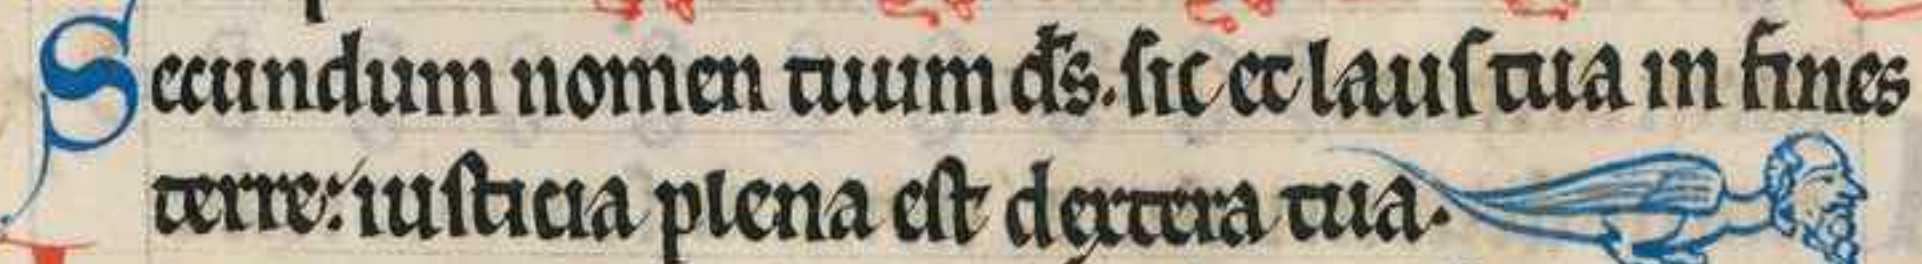 Secundum nomen tuum ds̄. sic et laus tua in fines
terre: iusticia plena est dextera tua.